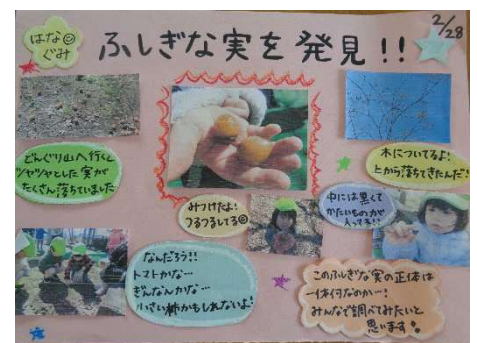 はな
ぐみ
ふしぎな実を発見!!
2/28
どんぐり山へ行くと
ツヤツヤとした実が
たくさん落ちていました
木についてるよ!
上から落ちてきたんだ!
みつけたよ!
つるつるしてる
中には黒くて
かたいものが
入ってる!!
なんだろう!!
トマトかな…
ぎんなんかな…
小さい柿かもしれないよ!
このふしぎな実の正体は
一体何なのか…!
みんなで調べてみたいと
思います!